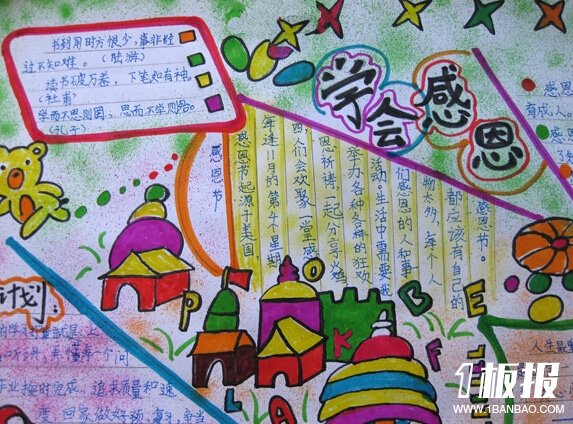 书到用时方恨少,事非经
过不知难。(陆游)
读书破万卷,下笔如有神。
(杜甫)
学而不思则罔,思而不学则殆。
(孔子)
学会感恩
感恩节
感恩节起源于美国,
每逢11月的第4个星期
四人们会欢聚一堂感
恩祈祷,一起分享火鸡
举办各种各样的狂欢
活动。生活中需要我
们感恩的人和事
物太多,每个人
都应该有自己的
感恩节。
感恩
有成人。
感恩
计划:
业按时完成,追求质量和速
度,回家做好预、复习,
人生最
P
O
B
E
L
A
K
F
1板报
WWW.1BANBAO.COM